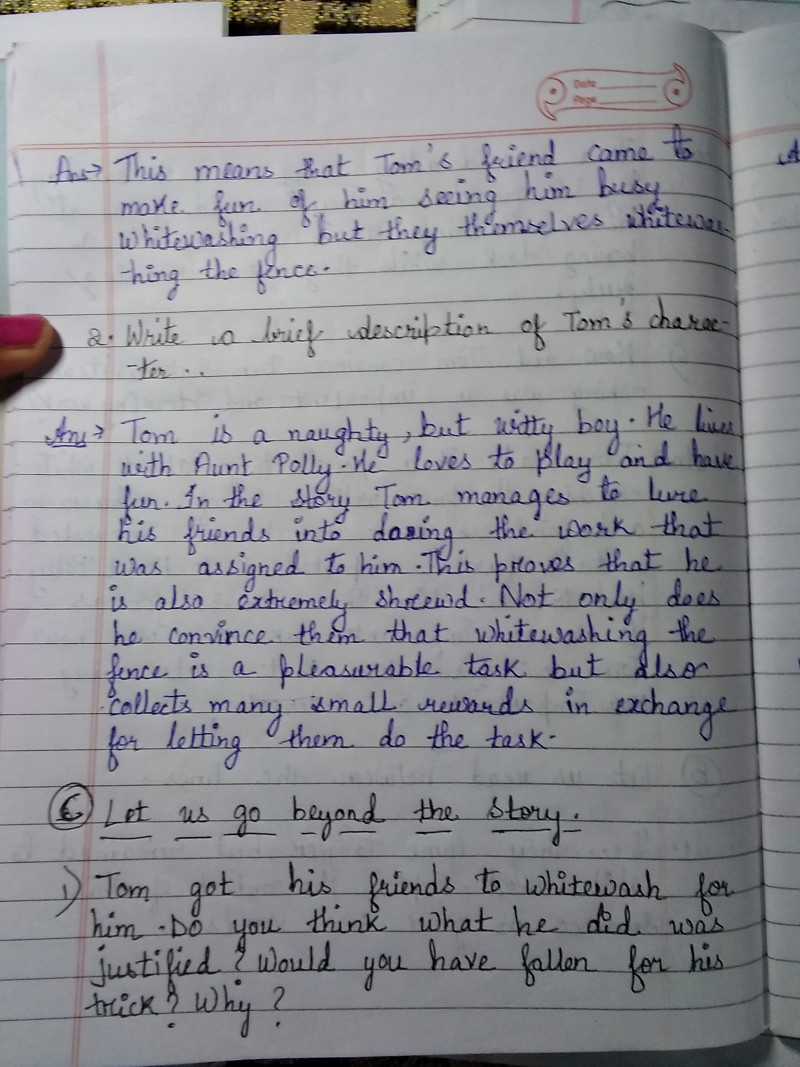 Date
Page
Ans→ This means that Tom's friend came to
make fun of him seeing him busy
whitewashing but they themselves whitewas-
-hing the fence.
2. Write a brief description of Tom's charac-
-ter..
Ans→ Tom is a naughty, but witty boy. He lives
with Aunt Polly. He loves to play and have
fun. In the story Tom manages to lure
his friends into doing the work that
was assigned to him. This proves that he
is also extremely shrewd. Not only does
he convince them that whitewashing the
fence is a pleasurable task but also
collects many small rewards in exchange
for letting them do the task.
C Let us go beyond the story.
1) Tom got his friends to whitewash for
him. Do you think what he did was
justified? Would you have fallen for his
trick? Why?